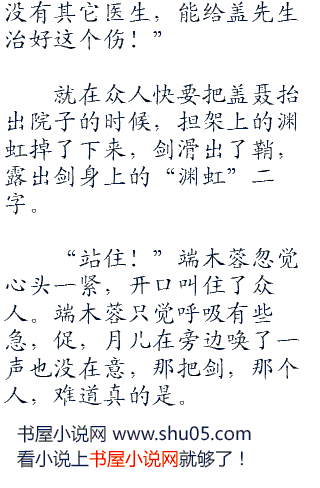 没有其它医生，能给盖先生
治好这个伤！”
就在众人快要把盖聂抬
出院子的时候，担架上的渊
虹掉了下来，剑滑出了鞘，
露出剑身上的“渊虹”二
字。
“站住！”端木蓉忽觉
心头一紧，开口叫住了众
人。端木蓉只觉呼吸有些
急，促，月儿在旁边唤了一
声也没在意，那把剑，那个
人，难道真的是。
书屋小说网 www.shu05.com
看小说上书屋小说网就够了！